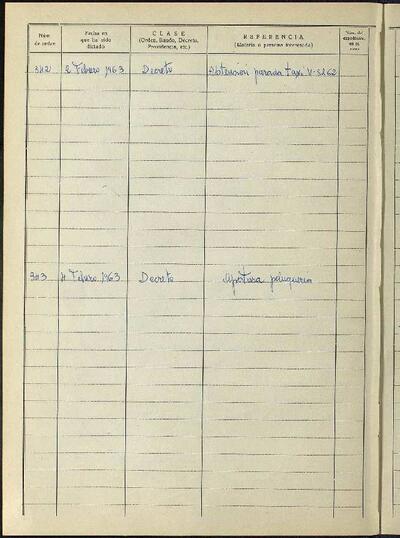 Núm. de orden
Fecha en que ha sido dictado
CLASE (Orden, Bando, Decreto, Providencia, etc.)
REFERENCIA (Materia o persona interesada)
Núm. del expediente
342 2 Febrero 1963 Decreto parada taxi V-
343 4 Febrero 1963 Decreto Apertura peluqueria